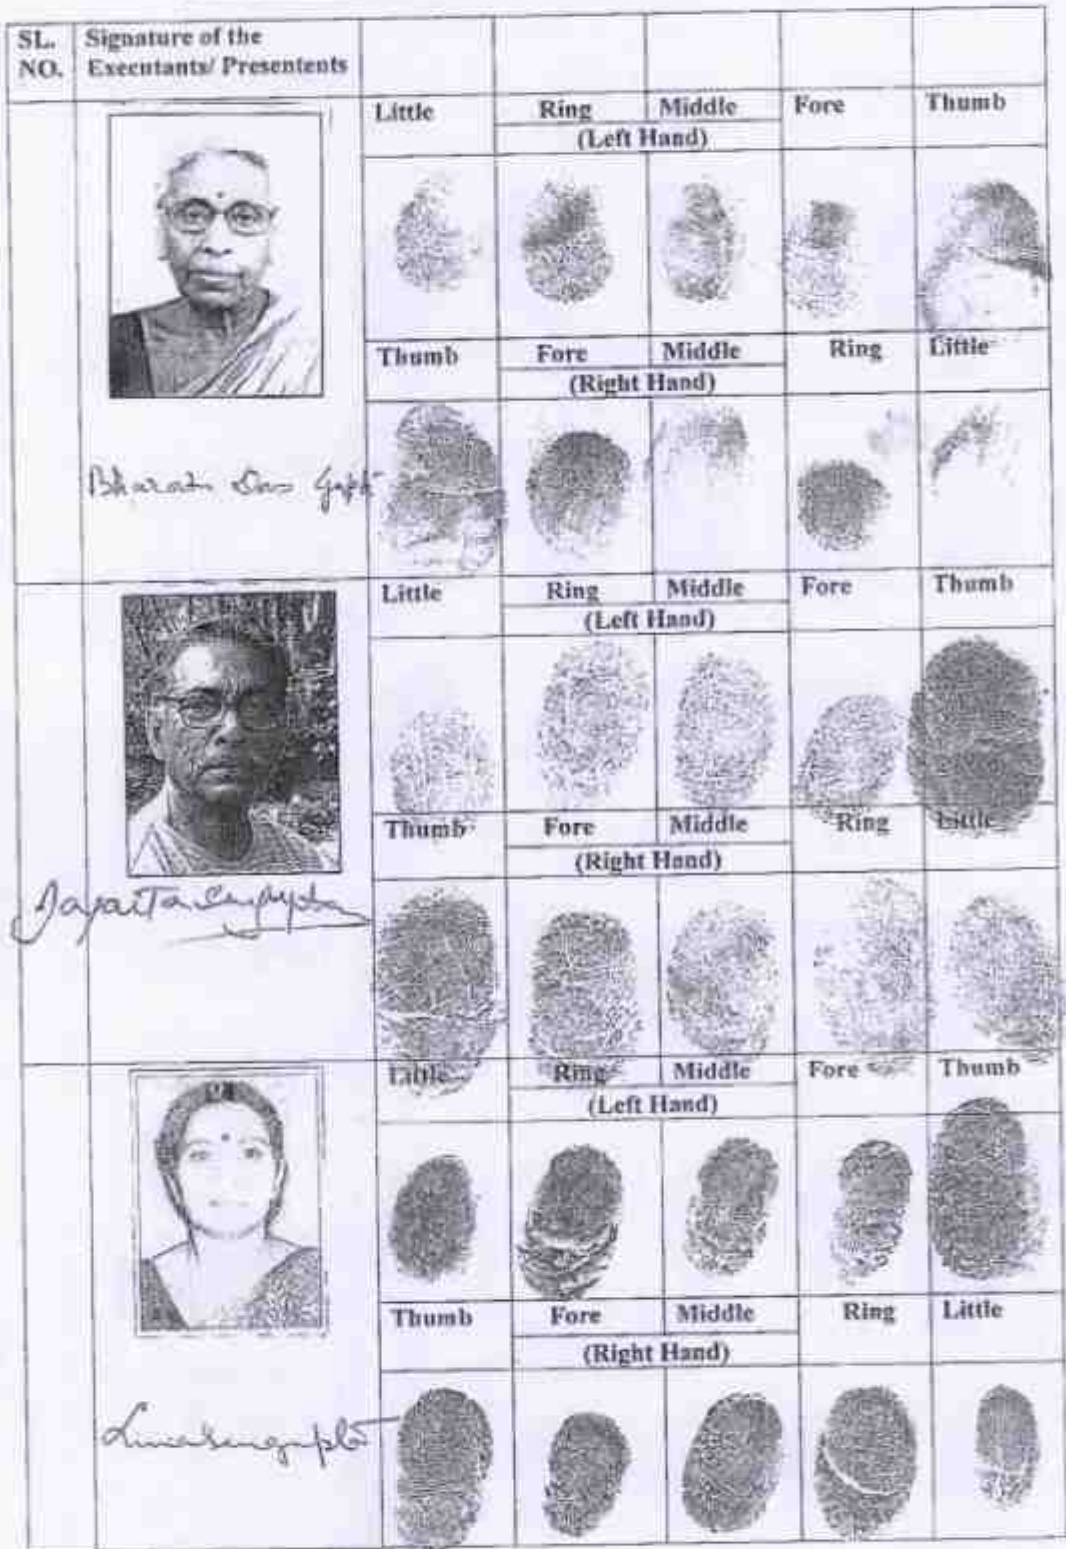 SL. NO. Signature of the Executants/ Presentents
Little Ring Middle Fore Thumb
(Left Hand)
Thumb Fore Middle Ring Little
(Right Hand)
Bharati Das Gupta
Little Ring Middle Fore Thumb
(Left Hand)
Thumb Fore Middle Ring Little
(Right Hand)
Little Ring Middle Fore Thumb
(Left Hand)
Thumb Fore Middle Ring Little
(Right Hand)